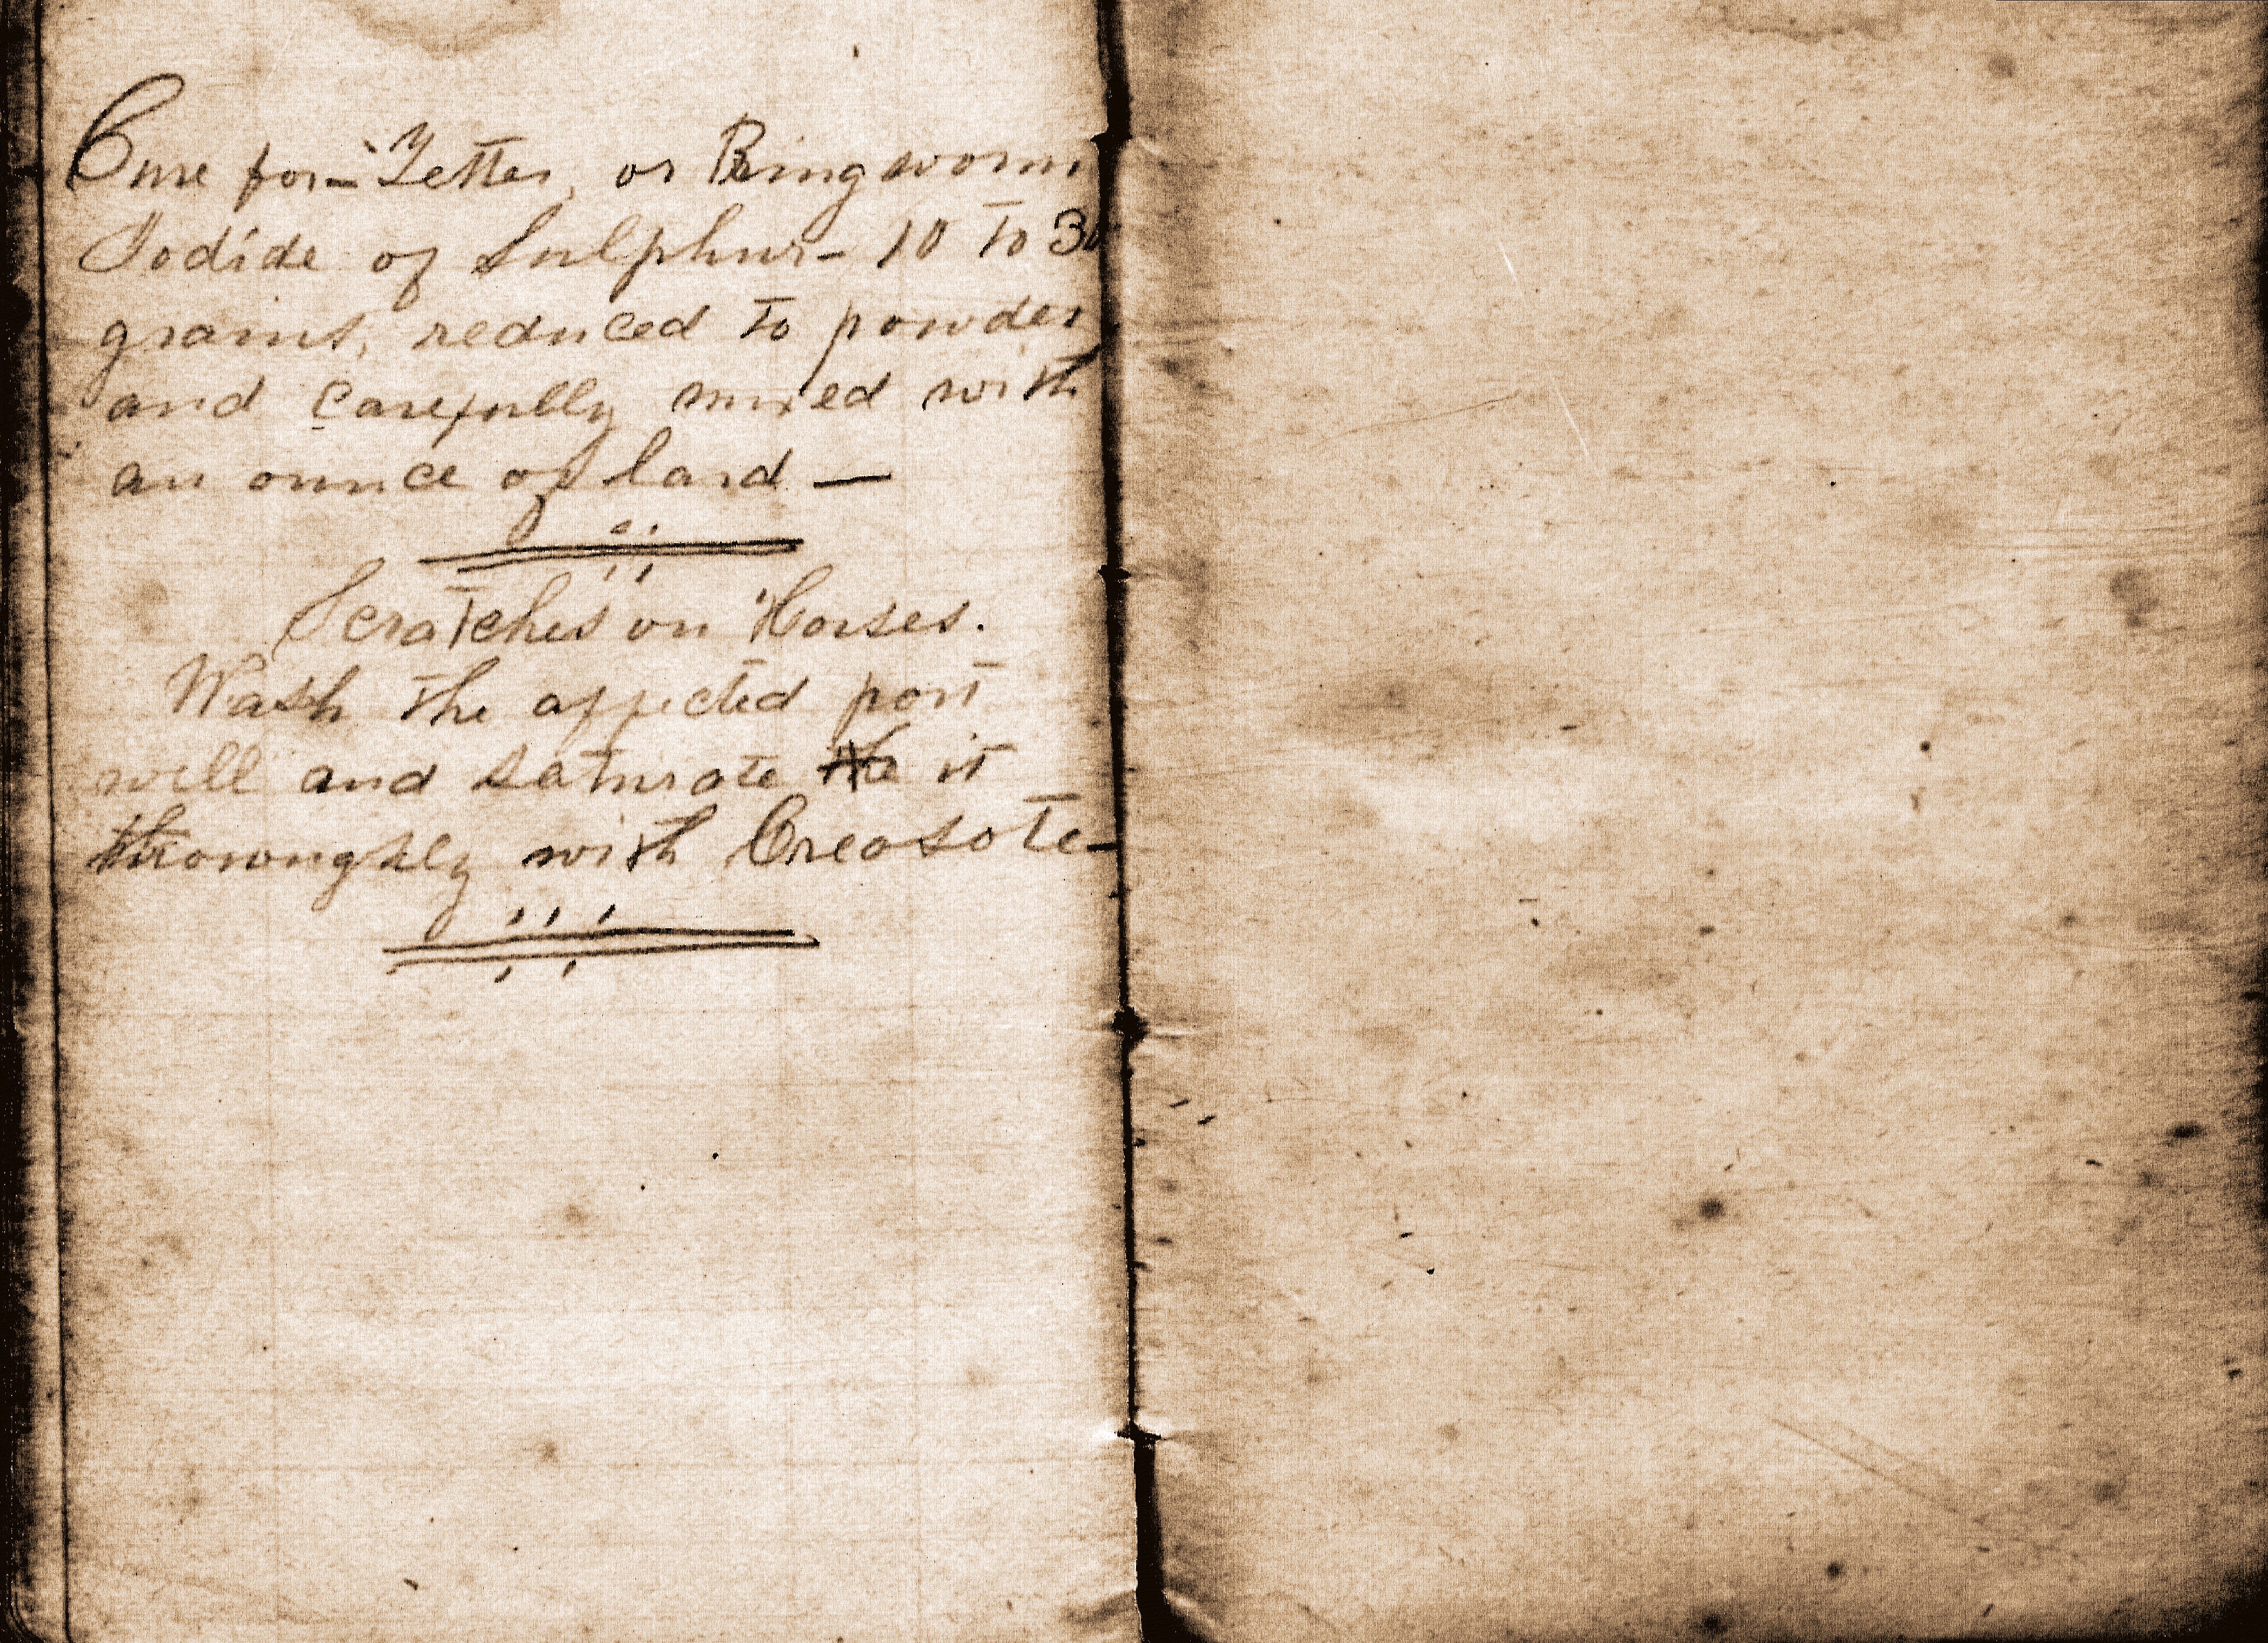 Cure for Tetter, or Ringworm
Iodide of Sulphur- 10 to 30
grains, reduced to powder
and carefully mixed with
an ounce of lard —
Scratches on Horses.
Wash the affected part
well and saturate the it
thoroughly with Creasote-